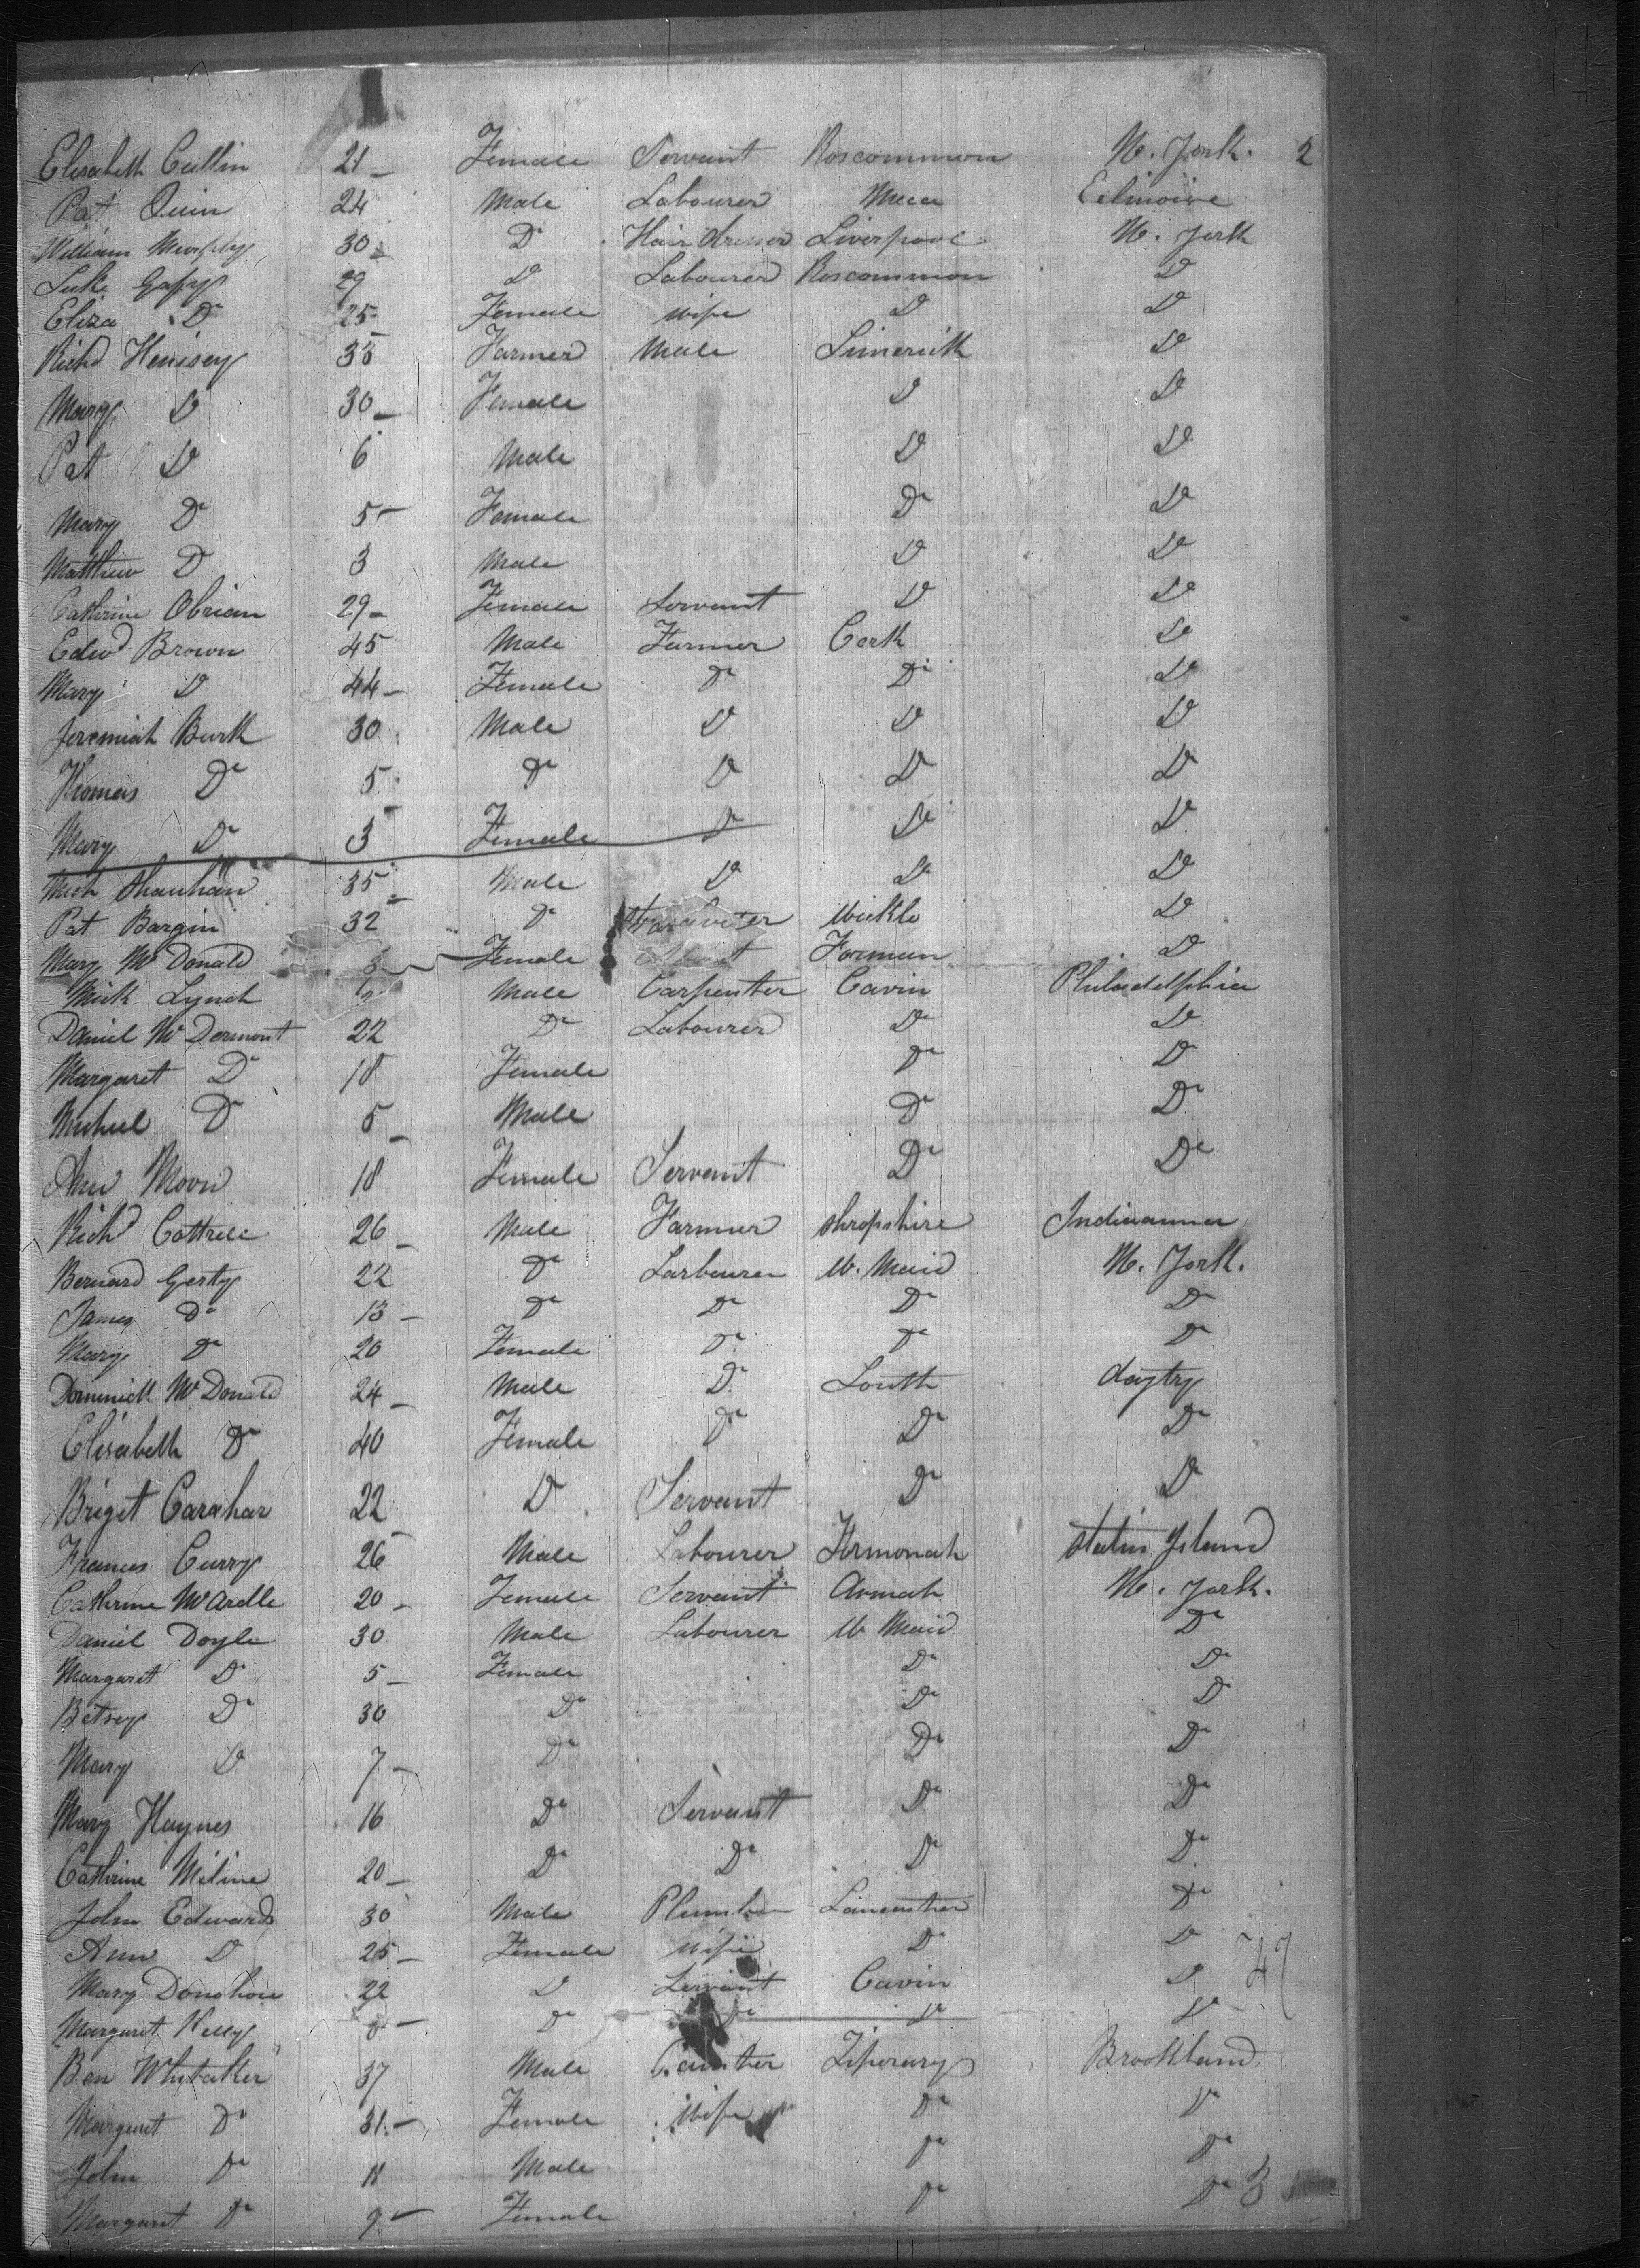 Elisabeth Cullin 21 Female Servant Roscommon N. York. 2
Pat Quin 24 Male Labourer
William Murphy 30 Do Hair dresser Liverpool N. York
Luke 29 Do Labourer Roscommon Do
Eliza Do 25 Female wife Do Do
Richd Henisey 35 Farmer Male Limerick Do
Mary Do 30 Female Do Do
Pat Do 6 Male Do Do
Mary Do 5 Female Do Do
Matthew Do 3 Male Do Do
Catherine Obrian 29 Female Servant Do Do
Edwd Brown 45 Male Farmer Cork Do
Mary Do 44 Female Do Do Do
Jeremiah Burk 30 Male Do Do Do
Thomas Do 5 Do Do Do Do
Mary Do 3 Female Do Do Do
Mich Shauhan 35 Male Do Do Do
Pat Bargin 32 Do Wicklo Do
Mary Mc Donald Female Do
Mick Lynch Male Carpenter Cavin Philadelphia
Daniel Mc Dermont 22 Do Labourer Do Do
Margaret Do 18 Female Do Do
Micheul Do 5 Male Do Do
Ann Moon 18 Female Servant Do Do
Richd Cottrell 26 Male Farmer Shropshire Indiaanna
Bernard Gerty 22 Do Larbourer W. Maid N. York.
James Do 13 Do Do Do Do
Mary Do 20 Female Do Do Do
Dominick Mc Donald 24 Male Do Louth daytry
Elisabeth Do 40 Female Do Do Do
Briget Carahar 22 Do Servant Do Do
Frances Curry 26 Male Labourer Firmonah Statin Island
Catherine McArdle 20 Female Servant Armah N. York.
Daniel Doyle 30 Male Labourer W Maid Do
Margaret Do 5 Female Do Do
Betsey Do 30 Do Do Do
Mary Do 7 Do Do Do
Mary Haynes 16 Do Servant Do Do
Catherine Miline 20 Do Do Do Do
John Edwards 30 Male Plumber Lancaster Do
Ann Do 25 Female wife Do Do
Mary Donohoe 22 Do Servant Cavin Do 47
Margaret Kelly Do Do Do Do
Ben Whitaker 37 Male Tiperary Brookland
Margaret Do 31 Female Wife Do Do
John Do 11 Male Do Do
Margaret Do 9 Female Do Do 3